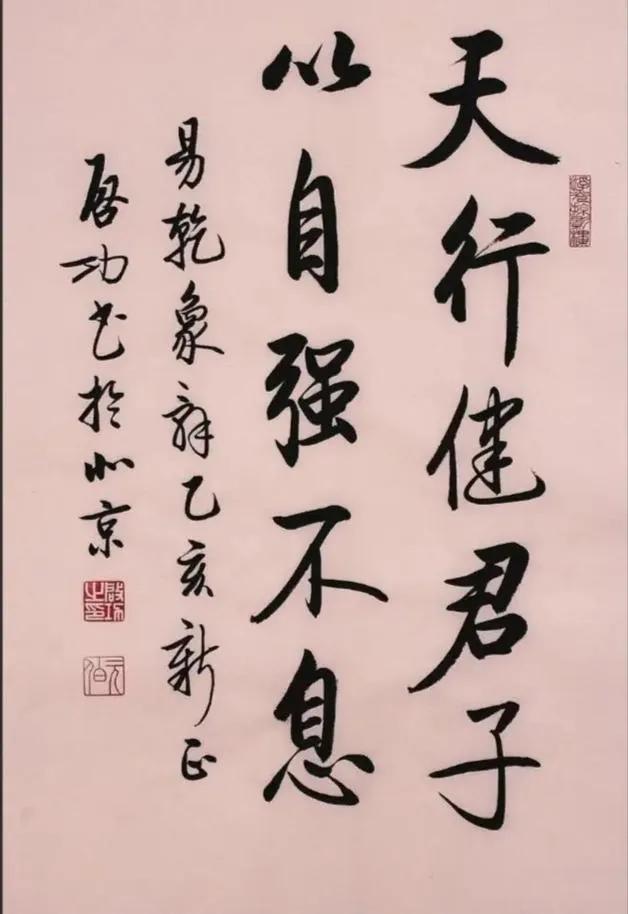 天行健君子
以自强不息
易乾象辞乙亥新正
启功书于北京
启功之印
元白